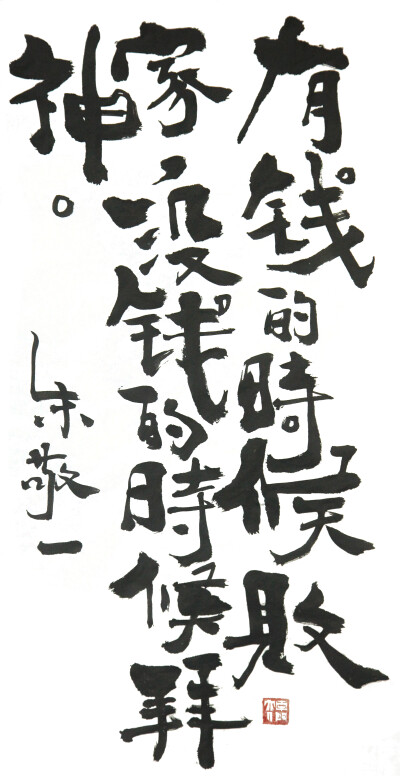 有钱的時候敗
家,没钱的時候拜
神。
朱敬一